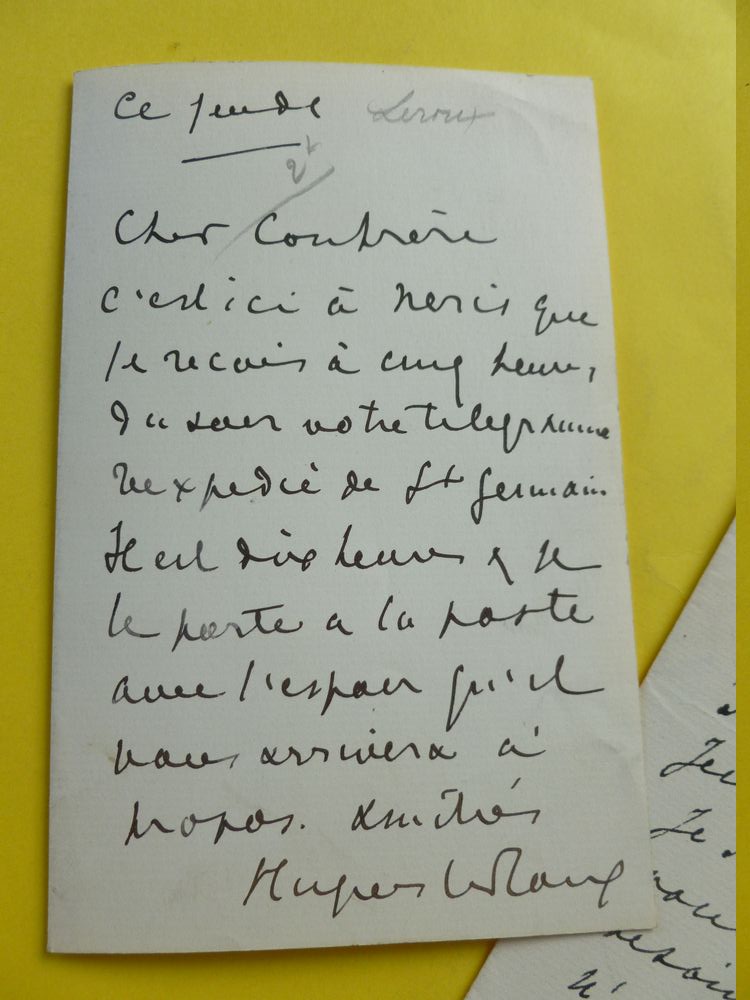 Ce jeudi Leroux
Cher Confrère
c'est ici à Neris que
je recois à cinq heures
du soir votre télégramme
réexpedié de St Germain
Il est dix heures & je
le porte a la poste
avec l'espoir qu'il
vous arrivera à
propos. Amitiés
Hugues Le Roux
Je